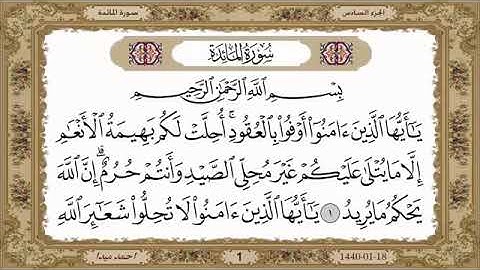 الجزء السادس
سورة المائدة
سُورَةُ المَائِدَة
بِسْمِ اللَّهِ الرَّحْمَٰنِ الرَّحِيمِ
يَـٰٓأَيُّهَا الَّذِينَ ءَامَنُوٓا۟ أَوْفُوا۟ بِالْعُقُودِ ۚ أُحِلَّتْ لَكُم بَهِيمَةُ الْأَنْعَـٰمِ
إِلَّا مَا يُتْلَىٰ عَلَيْكُمْ غَيْرَ مُحِلِّى الصَّيْدِ وَأَنتُمْ حُرُمٌ ۗ إِنَّ اللَّهَ
يَحْكُمُ مَا يُرِيدُ ١ يَـٰٓأَيُّهَا الَّذِينَ ءَامَنُوا۟ لَا تُحِلُّوا۟ شَعَـٰٓئِرَ اللَّهِ
1440-01-18
1